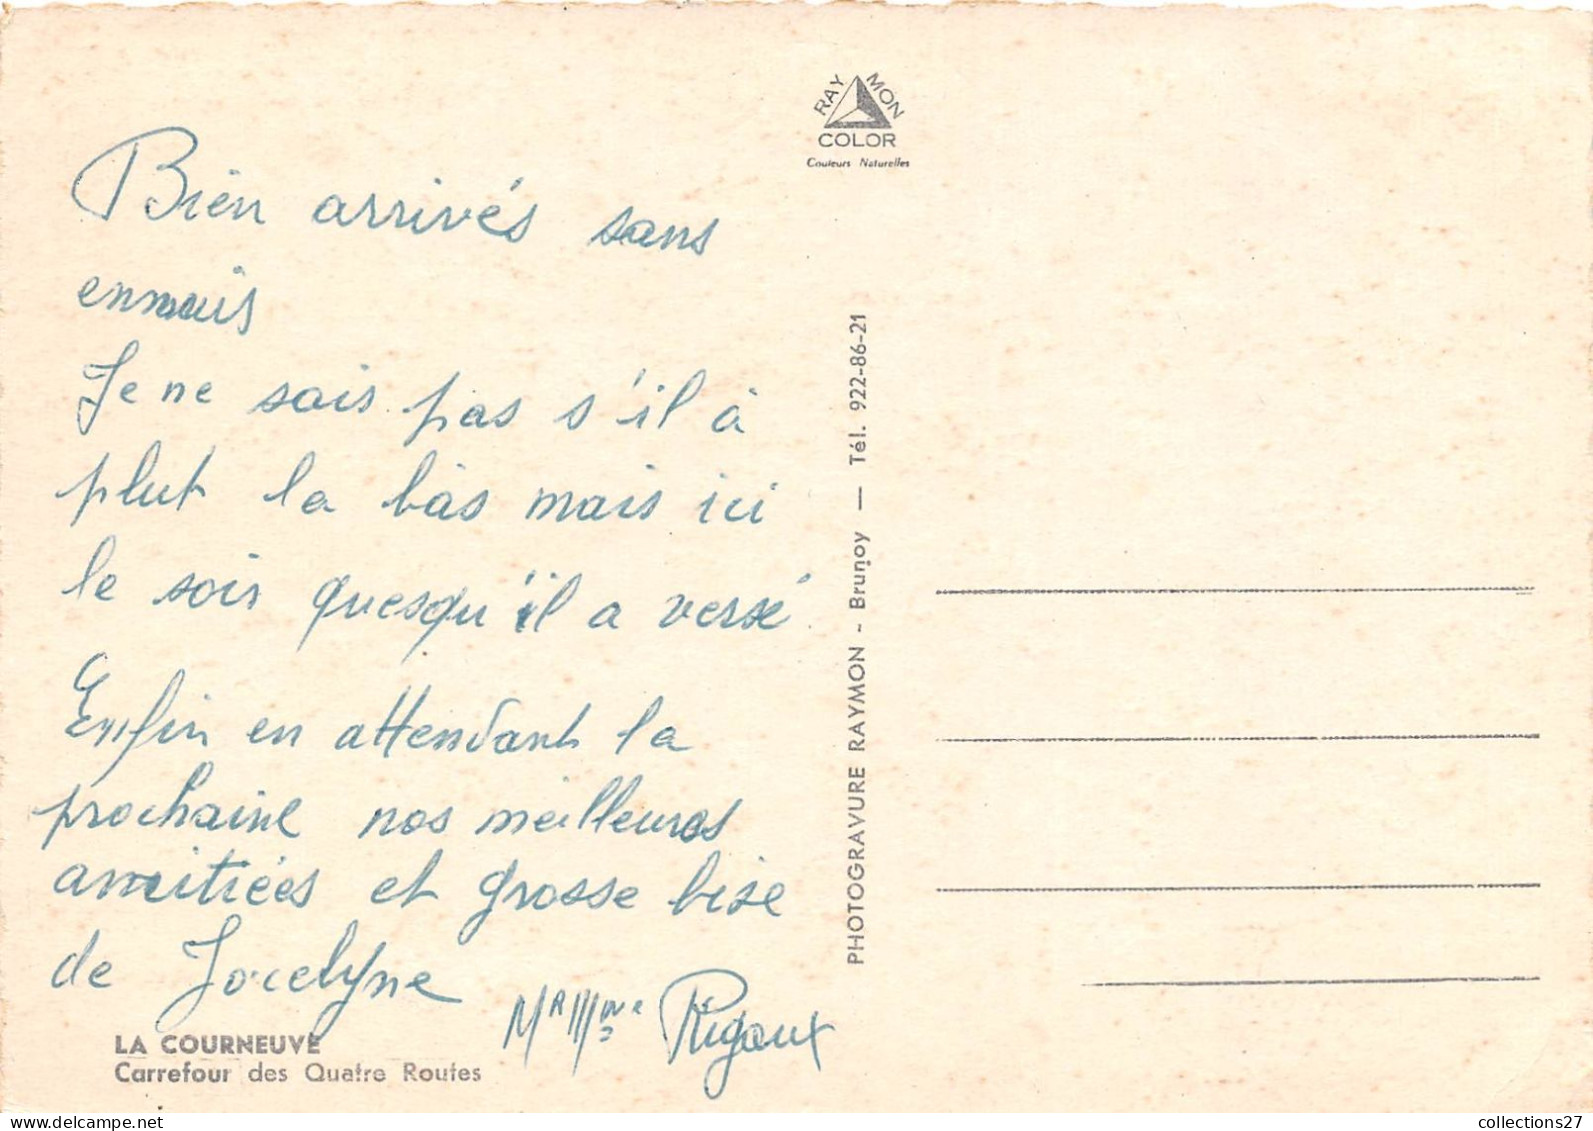 RAYMON
COLOR
Couleurs Naturelles
Bien arrivés sans
ennuis
Je ne sais pas s'il à
plut la bas mais ici
le soir quesqu'il a versé
Enfin en attendant la
prochaine nos meilleures
amitiées et grosse bise
de Jocelyne
Mr Mme Rigaux
LA COURNEUVE
Carrefour des Quatre Routes
PHOTOGRAVURE RAYMON - Brunoy — Tél. 922-86-21
collections27